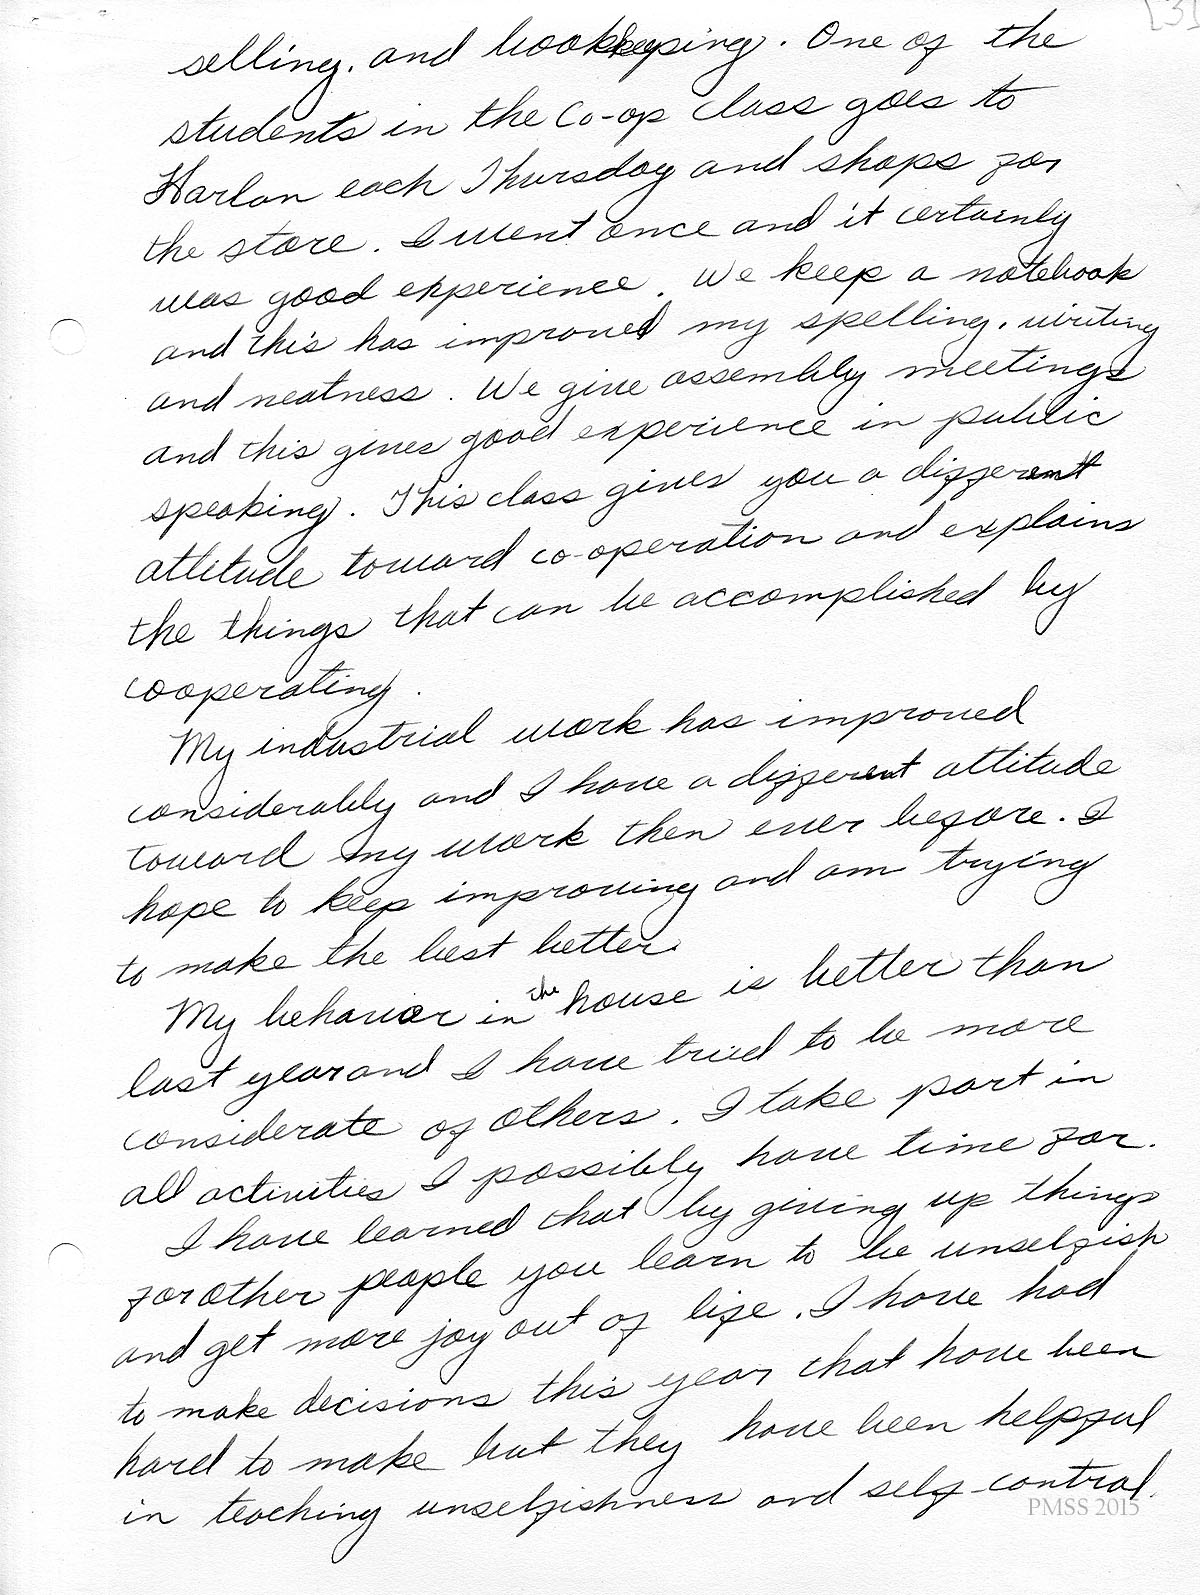 [3]
selling, and bookkeeping. One of the
students in the Co-op class goes to
Harlan each Thursday and shops for
the store. I went once and it certainly
was good experience. We keep a notebook
and this has improved my spelling, writing
and neatness. We give assembly meetings
and this gives good experience in public
speaking. This class gives you a different
attitude toward co-operation and explains
the things that can be accomplished by
cooperating.
My industrial work has improved
considerably and I have a different attitude
toward my work then ever before. I
hope to keep improving and am trying
to make the best better.
My behavior in the house is better than
last year and I have tried to be more
considerate of others. I take part in
all activities I possibly have time for.
I have learned that by giving up things
for other people you learn to be unselfish
and get more joy out of life. I have had
to make decisions this year that have been
hard to make but they have been helpful
in teaching unselfishness and self-control.
PMSS 2015